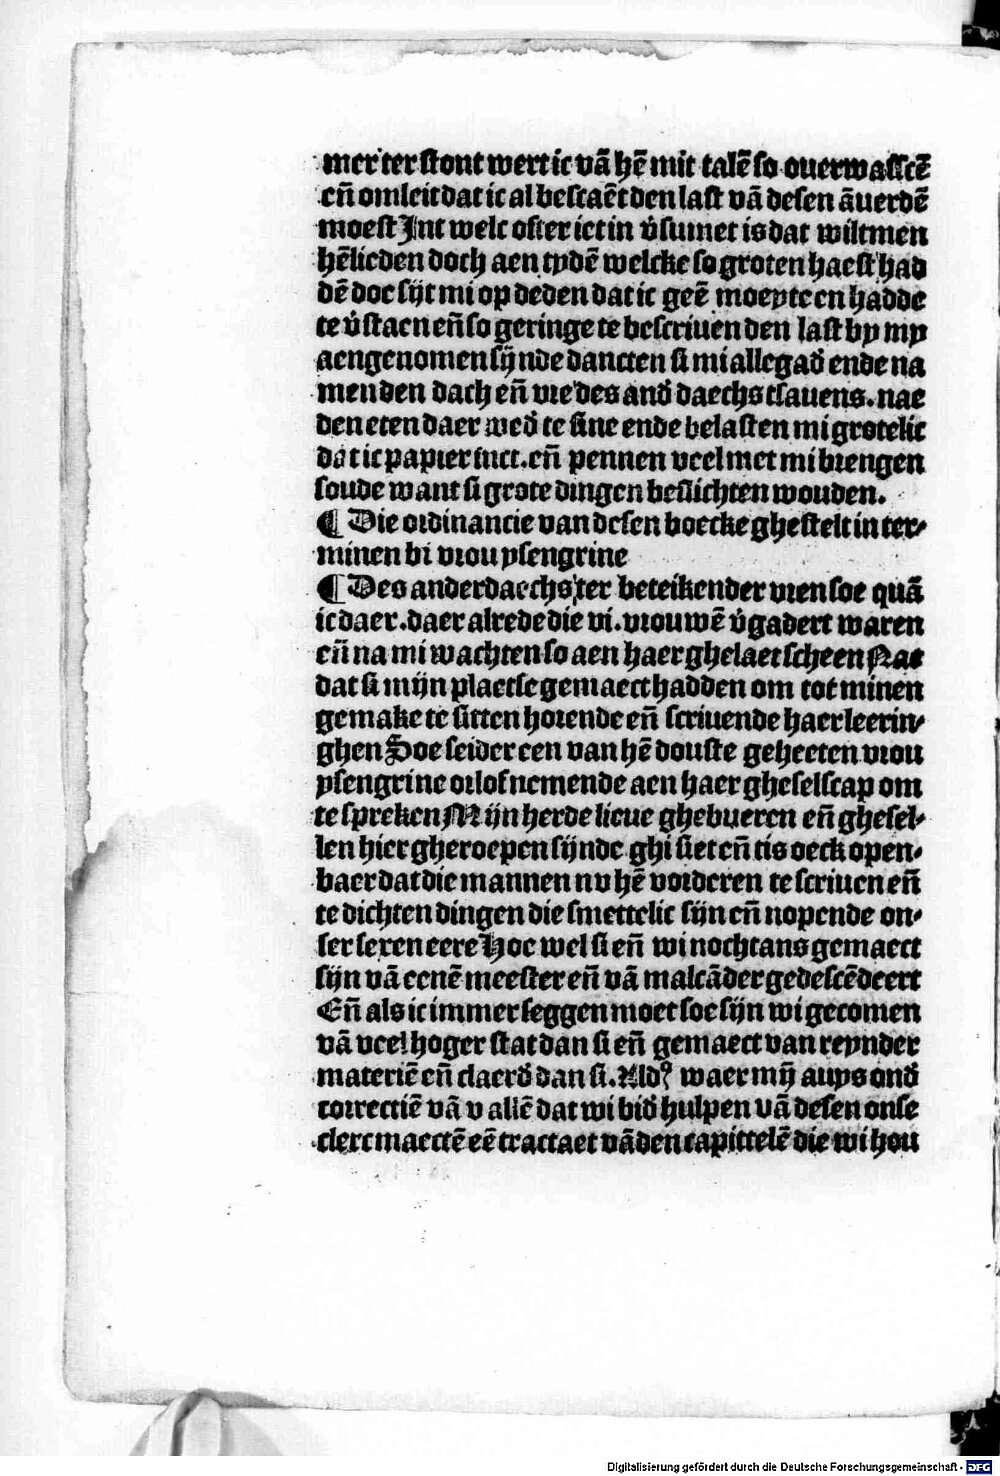 mer ter stont wert ic vā hē mit talē so ouerwasscē
eñ omleit dat ic al bescaēt den last vā desen āuerdē
moest Int welc oft er ict in v̄sumet is dat wiltmen
hēlieden doch aen tydē welcke so groten haest had
dē doe sijt mi op deden dat ic geē moeyte en hadde
te v̄staen eñ so geringe te bescriuen den last by my
aengenomen sijnde dancten si mi allegad̄ ende na
menden dach eñ vre des and̄ daechs tsauens. nae
den eten daer wed̄ te sine ende belasten mi grotelic
dat ic papier inct. eñ pennen veel met mi brengen
soude want si grote dingen beslichten wouden.
¶ Die ordinancie van desen boecke ghestelt in ter-
minen bi vrou ysengrine
¶ Des anderdaechs ter beteikender vren soe quā
ic daer. daer alrede die vi. vrouwē v̄gadert waren
eñ na mi wachten so aen haer ghelaet scheen Nae
dat si mijn plaetse gemaect hadden om tot minen
gemake te sitten horende eñ scriuende haer leerin-
ghen Soe seider een van hē douste geheeten vrou
ysengrine orlof nemende aen haer ghesellscap om
te spreken Mijn herde lieue ghebueren eñ ghesel-
len hier gheroepen sijnde ghi siet eñ tis oeck open-
baer dat die mannen nv hē vorderen te scriuen eñ
te dichten dingen die smettelic sijn eñ nopende on-
ser sexen eere Hoe wel si eñ wi nochtans gemaect
sijn vā eenē meester eñ vā malcāder gedescēdeert
Eñ als ic immer seggen moet soe sijn wi gecomen
vā veel hoger stat dan si eñ gemaect van reynder
materiē eñ claerd̄ dan si. Aldꝰ waer mij auys ond̄
correctiē vā v allē dat wi bid̄ hulpen vā desen onse
clerc maectē eē tractaet vādan capittelē die wi hou